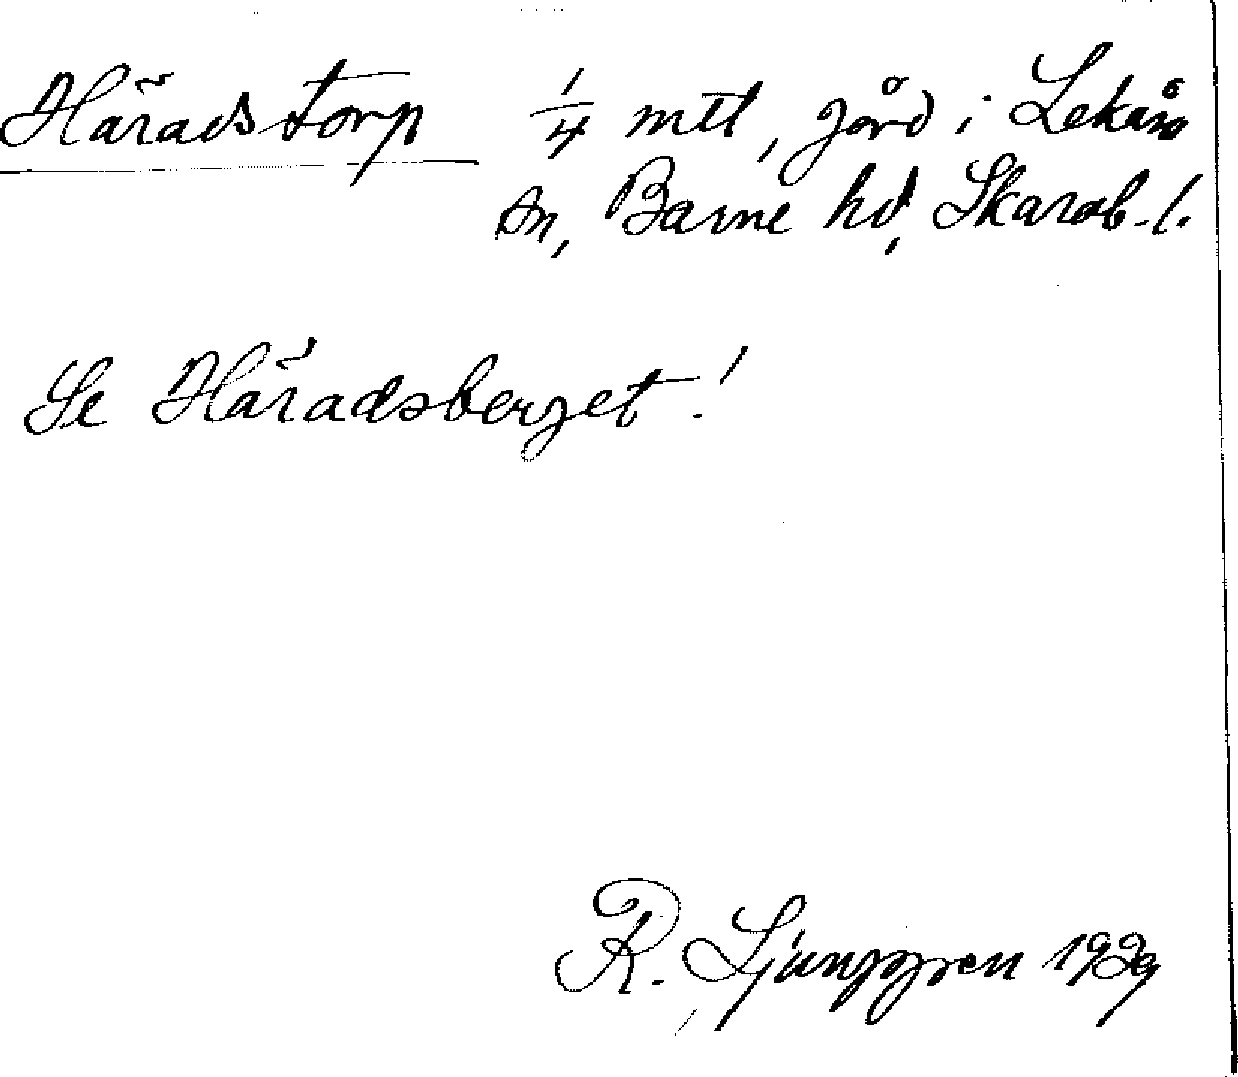 Häradstorp 1/4 mtl, gård i Lekåsa
sn, Barne hd, Skarab. l.
Se Häradsberget!
R. Ljunggren 1929